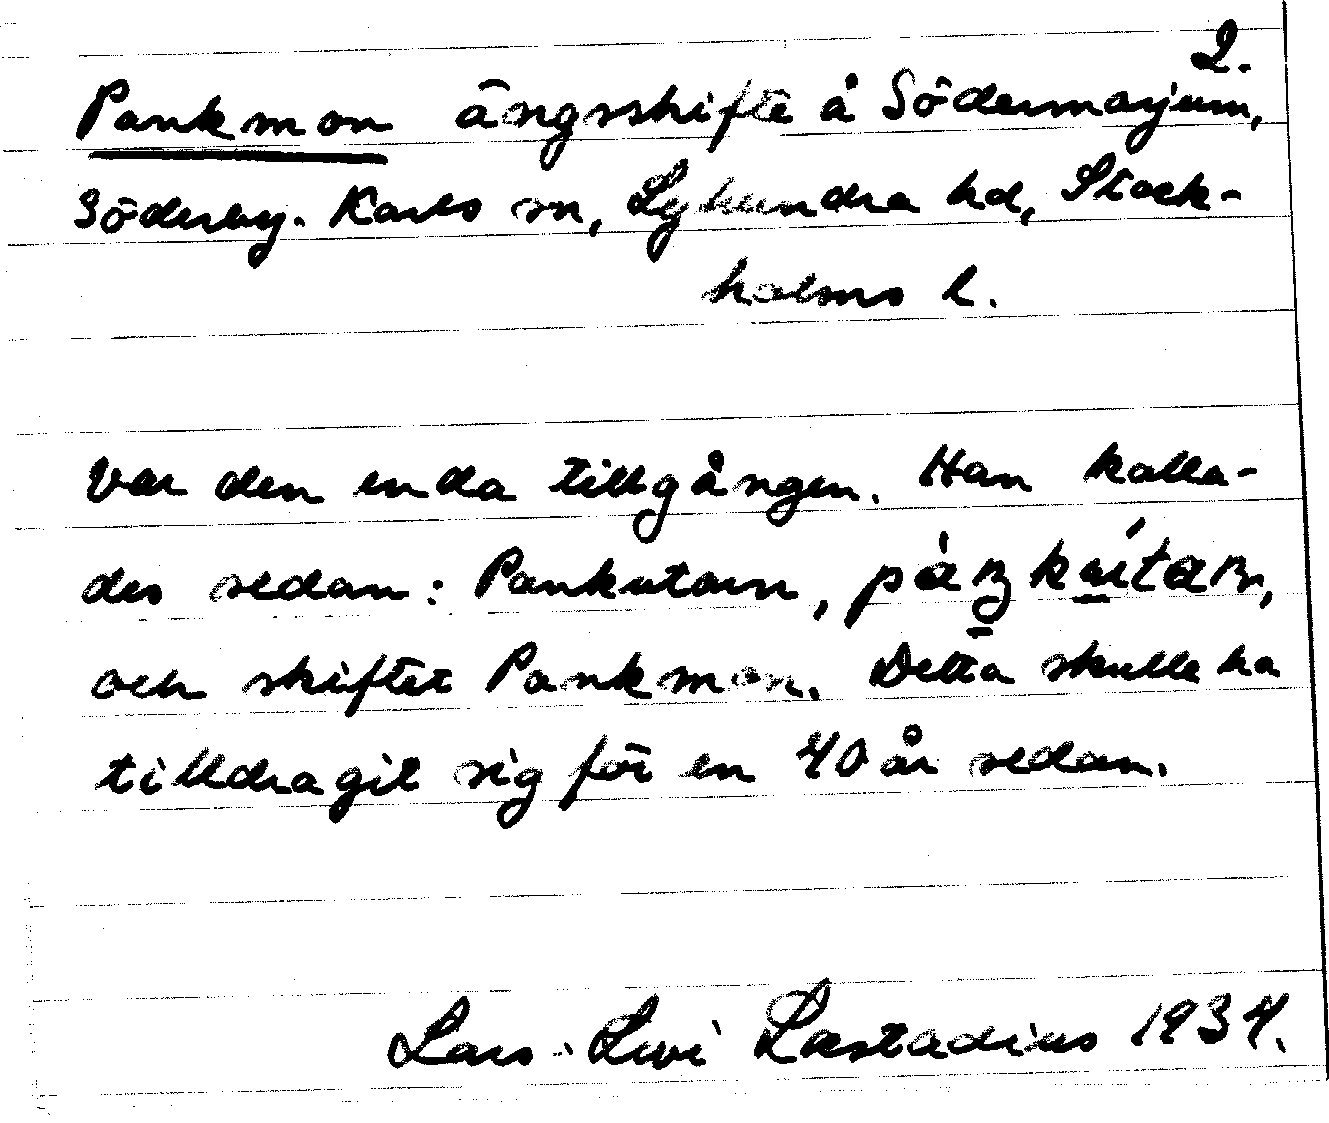 2.
Pankmon ängsskifte å Södermarjum,
Söderby-Karls sn, Lyhundra hd, Stock-
holms l.
var den enda tillgången. Han kalla-
des sedan: Pankutarn,
och skiftet Pankmon. Detta skulle ha
tilldragit sig för en 40 år sedan.
Lars-Levi Læstadius 1934.